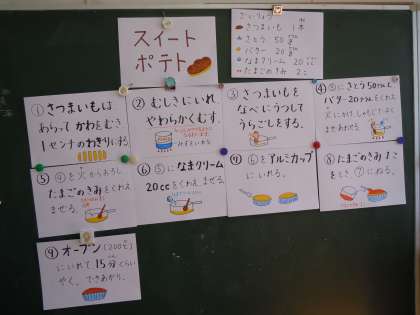 スイート
ポテト
ざいりょう
さつまいも 1本
さとう 50グラム
バター 20グラム
なまクリーム 20cc
たまごのきみ 2こ
① さつまいもは
あらって かわをむき
1センチのわぎりにする。
② むしきにいれ、
やわらかくむす。
③ さつまいもを
なべにうつして
うらごしをする。
④ ③にさとう50グラムと
バター20グラムをくわえ
まぜあわせる
⑤ ④を火からおろし
たまごのきみをくわえ
まぜる。
⑥ ⑤になまクリーム
20ccをくわえ まぜる。
⑦ ⑥をアルミカップ
にいれる。
⑧ たまごのきみ1こ
をとき、⑦にぬる。
⑨ オーブン(200℃)
にいれて 15分くらい
やく。できあがり。